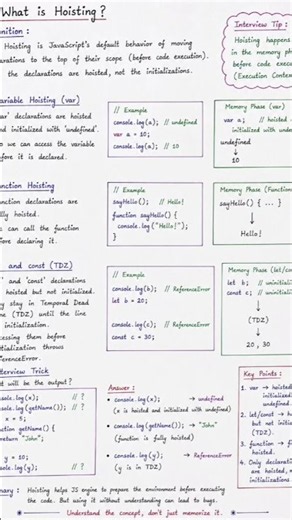 What is Hoisting?
nition :
Hoisting is JavaScript's default behavior of moving
arations to the top of their scope (before code execution).
the declarations are hoisted, not the initializations.
Interview Tip :
Hoisting happens
in the memory pha
before code execut
(Execution Contex
ariable Hoisting (var)
var' declarations are hoisted
nd initialized with 'undefined'.
o we can access the variable
efore it is declared.
// Example
console.log(a); // undefined
var a = 10;
console.log(a); // 10
Memory Phase (var)
var a; // hoisted
initialized with unde
undefined
↓
10
unction Hoisting
unction declarations are
lly hoisted.
can call the function
efore declaring it.
// Example
sayHello(); // Hello!
function sayHello() {
console.log("Hello!");
}
Memory Phase (Functio
sayHello() { ... }
↓
Hello!
and const (TDZ)
' and 'const' declarations
hoisted but not initialized.
y stay in Temporal Dead
ne (TDZ) until the line
initialization.
cessing them before
itialization throws
ferenceError.
// Example
console.log(b); // ReferenceError
let b = 20;
console.log(c); // ReferenceError
const c = 30;
Memory Phase (let/co
let b; // uninitial
const c; // uninitial
↓
(TDZ)
↓
20 , 30
terview Trick
at will be the output?
sole.log(x); // ?
sole.log(getName()); // ?
x = 5;
nction getName() {
return "John";
y = 10;
ole.log(y); // ?
Answer :
• console.log(x); → undefined
(x is hoisted and initialized with undefined)
• console.log(getName()); → "John"
(function is fully hoisted)
• console.log(y); → ReferenceError
(y is in TDZ)
Key Points :
1. var → hoisted
initialized
undefined.
2. let/const → h
but not init
(TDZ).
3. function → f
hoisted.
4. Only declarat
are hoisted, n
initializations
mary : Hoisting helps JS engine to prepare the environment before executing
the code. But using it without understanding can lead to bugs.
Understand the concept, don't just memorize it.